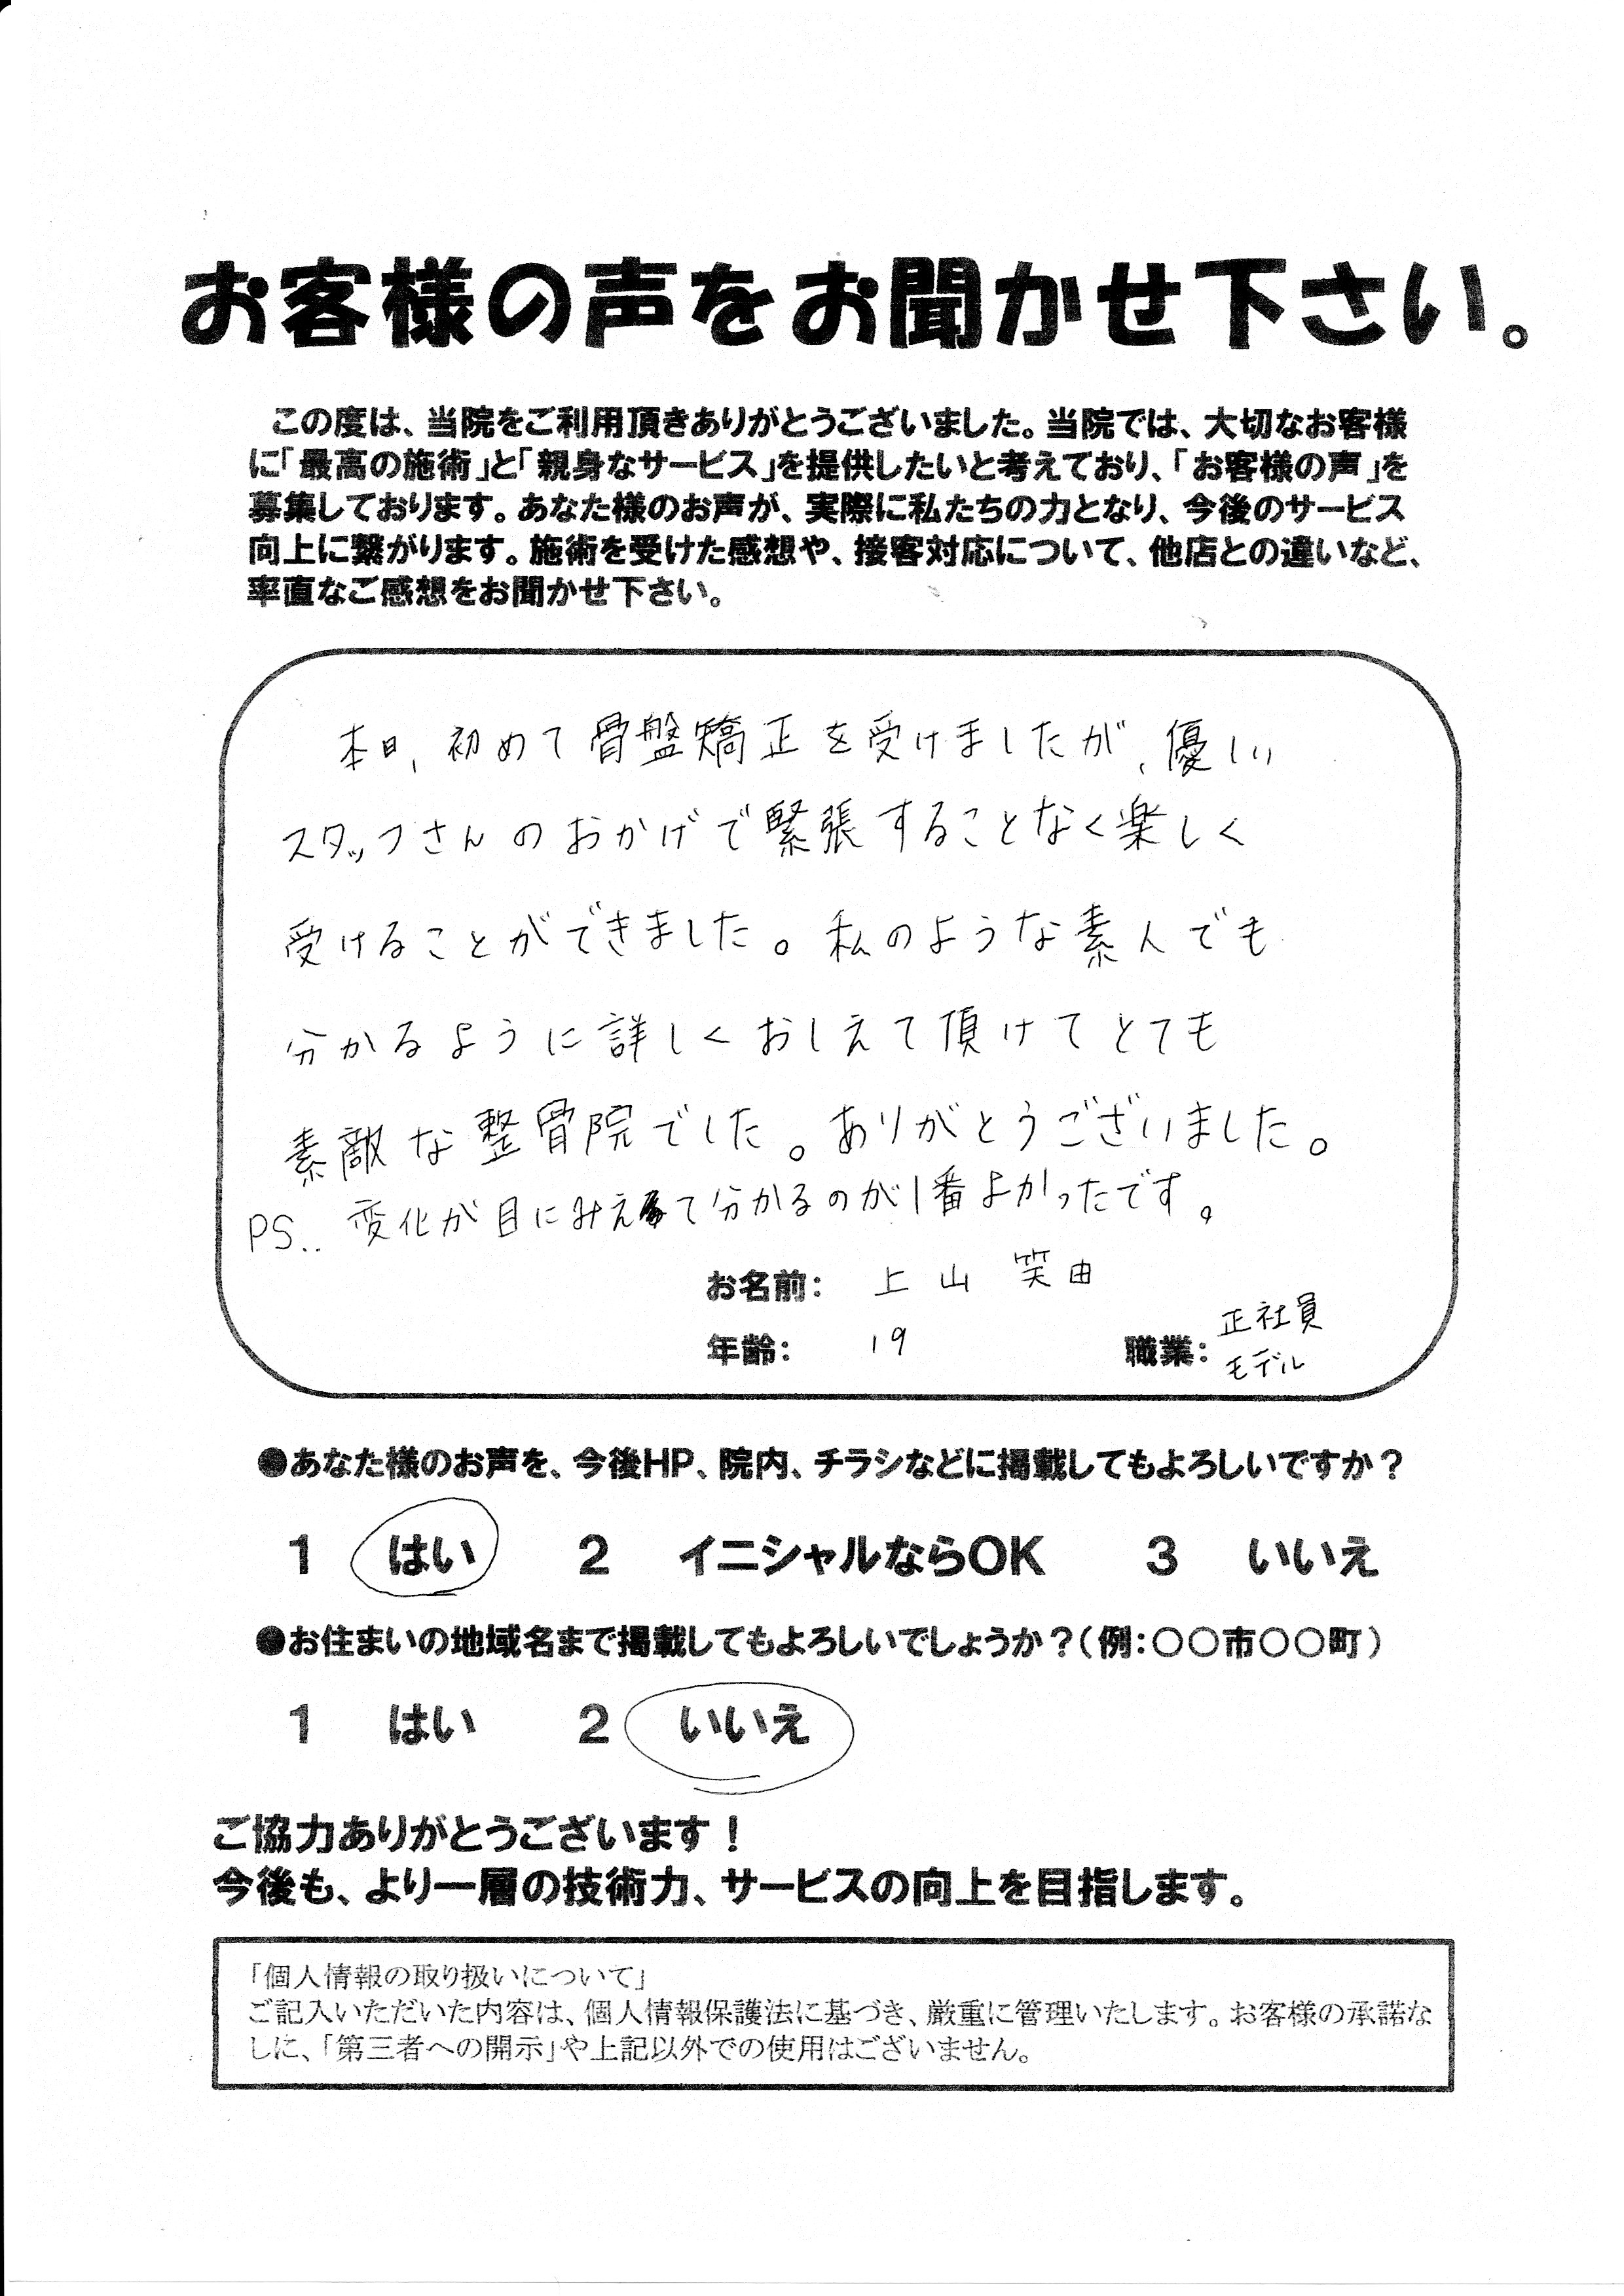 お客様の声をお聞かせ下さい。
この度は、当院をご利用頂きありがとうございました。当院では、大切なお客様
に「最高の施術」と「親身なサービス」を提供したいと考えており、「お客様の声」を
募集しております。あなた様のお声が、実際に私たちの力となり、今後のサービス
向上に繋がります。施術を受けた感想や、接客対応について、他店との違いなど、
率直なご感想をお聞かせ下さい。
本日、初めて骨盤矯正を受けましたが、優しい
スタッフさんのおかげで緊張することなく楽しく
受けることができました。私のような素人でも
分かるように詳しくおしえて頂けてとても
素敵な整骨院でした。ありがとうございました。
PS.. 変化が目にみえて分かるのが1番よかったです。
お名前: 上山 笑由
年齢: 19 職業: 正社員
モデル
●あなた様のお声を、今後HP、院内、チラシなどに掲載してもよろしいですか?
1 はい 2 イニシャルならOK 3 いいえ
●お住まいの地域名まで掲載してもよろしいでしょうか?(例:○○市○○町)
1 はい 2 いいえ
ご協力ありがとうございます!
今後も、より一層の技術力、サービスの向上を目指します。
「個人情報の取り扱いについて」
ご記入いただいた内容は、個人情報保護法に基づき、厳重に管理いたします。お客様の承諾な
しに、「第三者への開示」や上記以外での使用はございません。